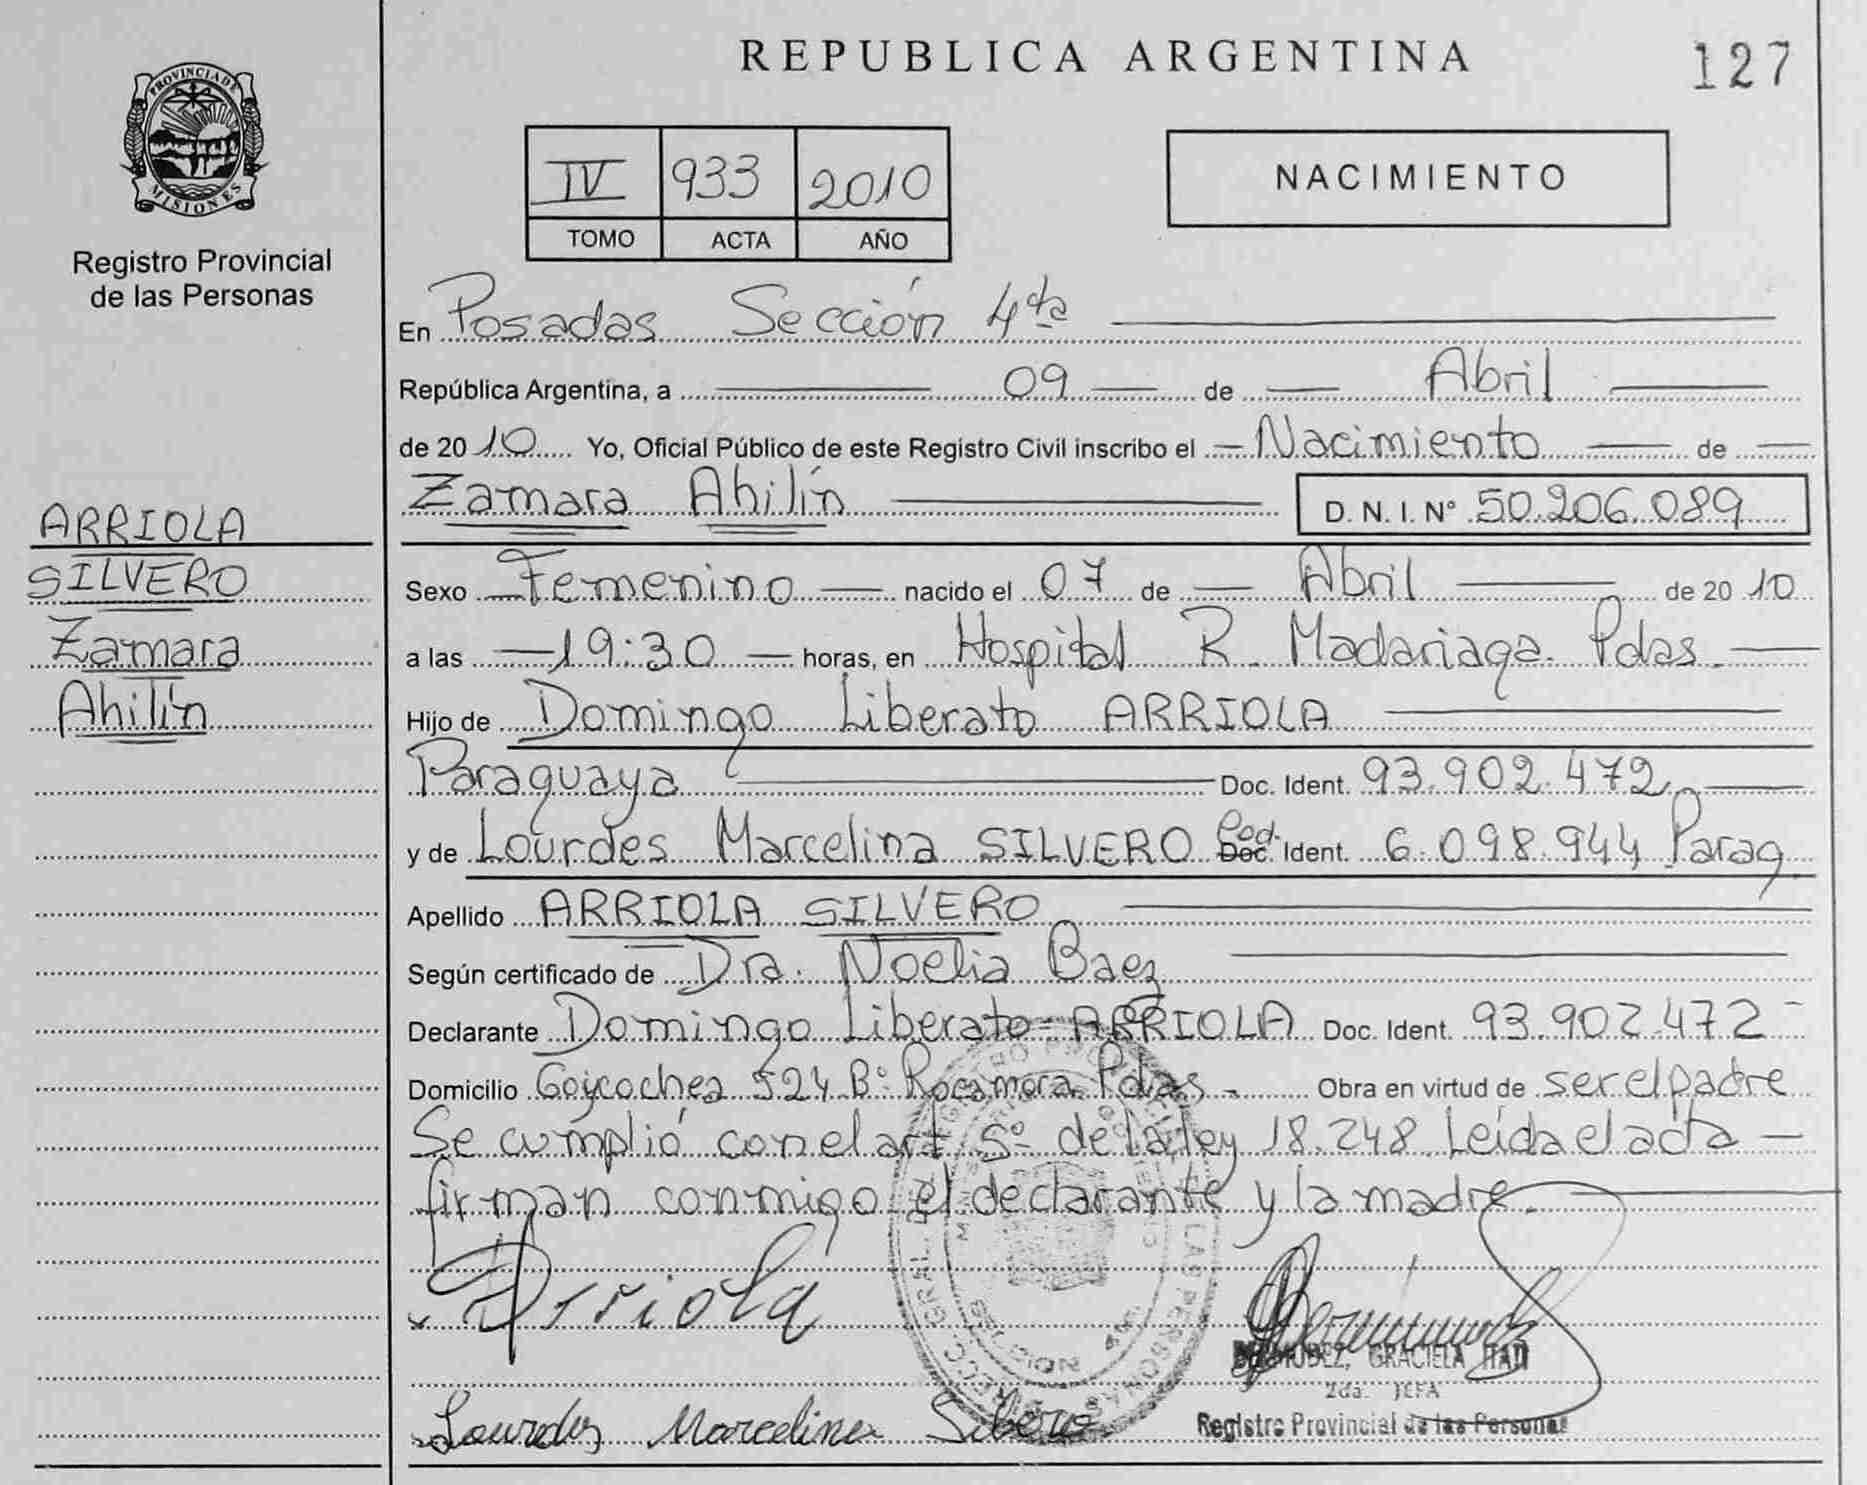 REPUBLICA ARGENTINA
127
PROVINCIA DE
MISIONES
Registro Provincial
de las Personas
IV 933 2010
TOMO ACTA AÑO
NACIMIENTO
En Posadas Sección 4ta
República Argentina, a 09 de Abril
de 2010 Yo, Oficial Público de este Registro Civil inscribo el Nacimiento de
Zamara Ahilín D. N. I. N° 50.206.089
ARRIOLA
SILVERO
Zamara
Ahilín
Sexo Femenino nacido el 07 de Abril de 2010
a las 19:30 horas, en Hospital R. Madariaga. Pdas.
Hijo de Domingo Liberato ARRIOLA
Paraguaya Doc. Ident. 93.902.472
y de Lourdes Marcelina SILVERO Ced. Doc. Ident. 6.098.944 Parag.
Apellido ARRIOLA SILVERO
Según certificado de Dra. Noelia Baez
Declarante Domingo Liberato ARRIOLA Doc. Ident. 93.902.472
Domicilio Goycochea 524 B° Rocamora Pdas - Obra en virtud de ser el padre
Se cumplió con el art 5° de la ley 18.248. Leída el acta
firman conmigo el declarante y la madre.
Arriola
BERMUDEZ, GRACIELA ITATI
2da. JEFA
Registro Provincial de las Personas
Lourdes Marcelina Silbero